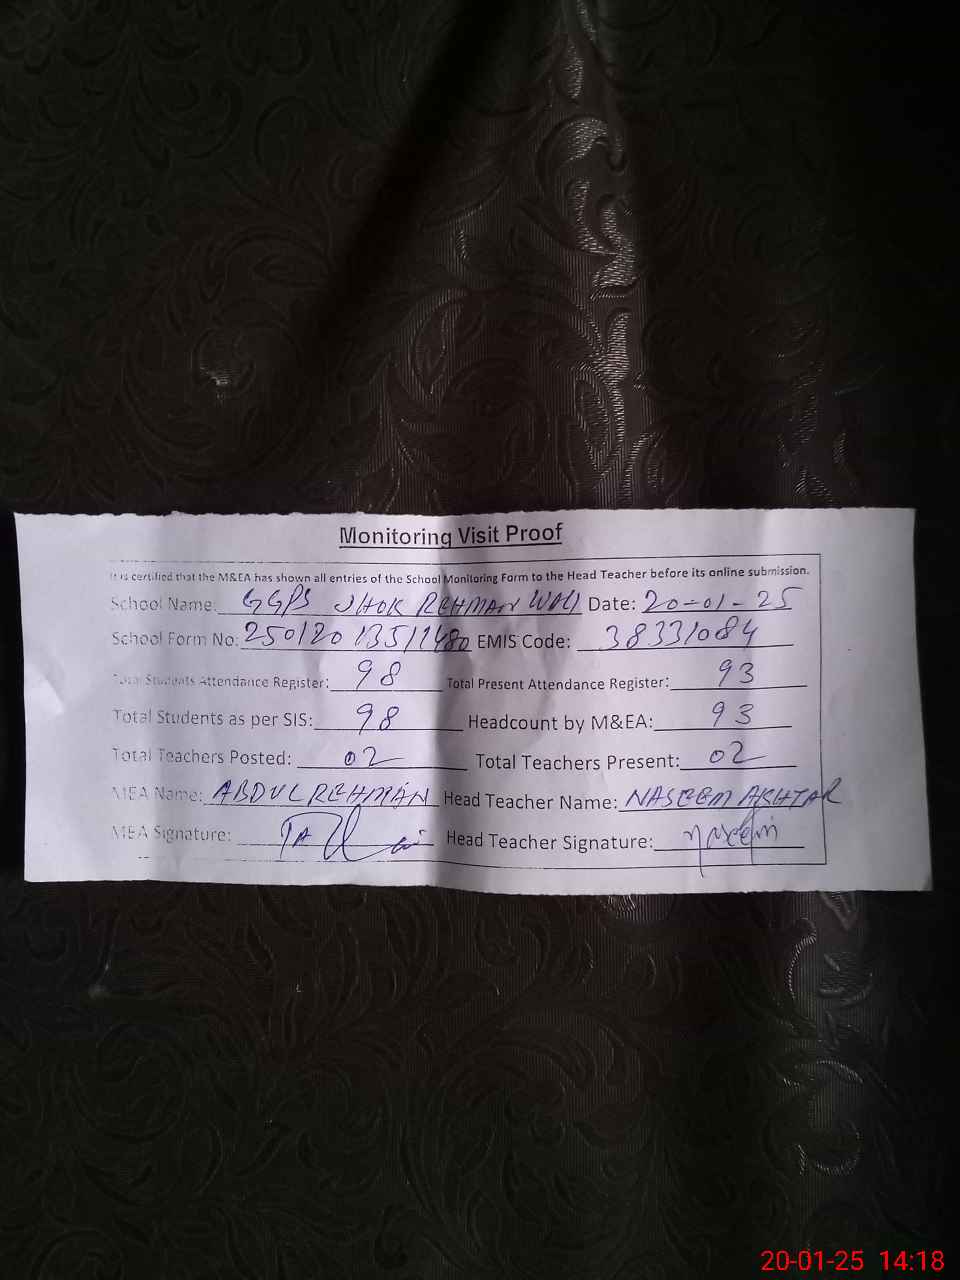 Monitoring Visit Proof
It is certified that the M&EA has shown all entries of the School Monitoring Form to the Head Teacher before its online submission.
School Name: GGPS JHOK REHMAN WALI Date: 20-01-25
School Form No: 250120135111480 EMIS Code: 38331084
Total Students Attendance Register: 98 Total Present Attendance Register: 93
Total Students as per SIS: 98 Headcount by M&EA: 93
Total Teachers Posted: 02 Total Teachers Present: 02
MEA Name: ABDUL REHMAN Head Teacher Name: NASEEM AKHTAR
MEA Signature: Head Teacher Signature: Naseem
20-01-25 14:18